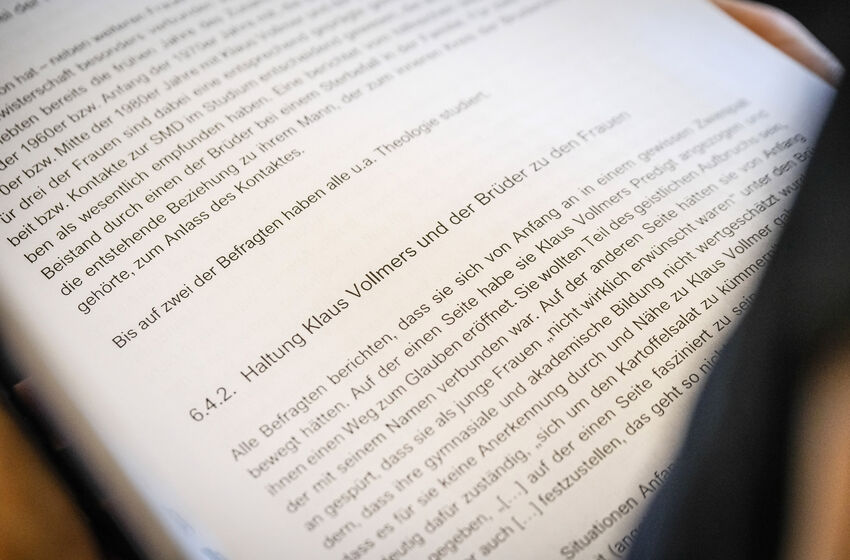 on hat – neben weiteren Frauen
wisterschaft besonders verbunden
ebten bereits die frühen Jahre des
der 1960er bzw. Anfang der 1970er Jahre
0er bzw. Mitte der 1980er Jahre mit Klaus Vollmer
ür drei der Frauen sind dabei eine entsprechend
beit bzw. Kontakte zur SMD im Studium entscheidend gewesen
ben als wesentlich empfunden haben. Eine berichtet vom
Beistand durch einen der Brüder bei einem Sterbefall in der Familie
die entstehende Beziehung zu ihrem Mann, der zum inneren Kreis der
gehörte, zum Anlass des Kontaktes.
Bis auf zwei der Befragten haben alle u.a. Theologie studiert.
6.4.2. Haltung Klaus Vollmers und der Brüder zu den Frauen
Alle Befragten berichten, dass sie sich von Anfang an in einem gewissen Zwiespalt
bewegt hätten. Auf der einen Seite habe sie Klaus Vollmers Predigt angezogen und
ihnen einen Weg zum Glauben eröffnet. Sie wollten Teil des geistlichen Aufbruchs sein,
der mit seinem Namen verbunden war. Auf der anderen Seite hätten sie von Anfang
an gespürt, dass sie als junge Frauen „nicht wirklich erwünscht waren“ unter den
dern, dass ihre gymnasiale und akademische Bildung nicht wertgeschätzt
dass es für sie keine Anerkennung durch und Nähe zu Klaus Vollmer
dafür zuständig, „sich um den Kartoffelsalat zu
gegeben, „[…] auf der einen Seite fasziniert zu
er auch […] festzustellen, das geht so
Situationen